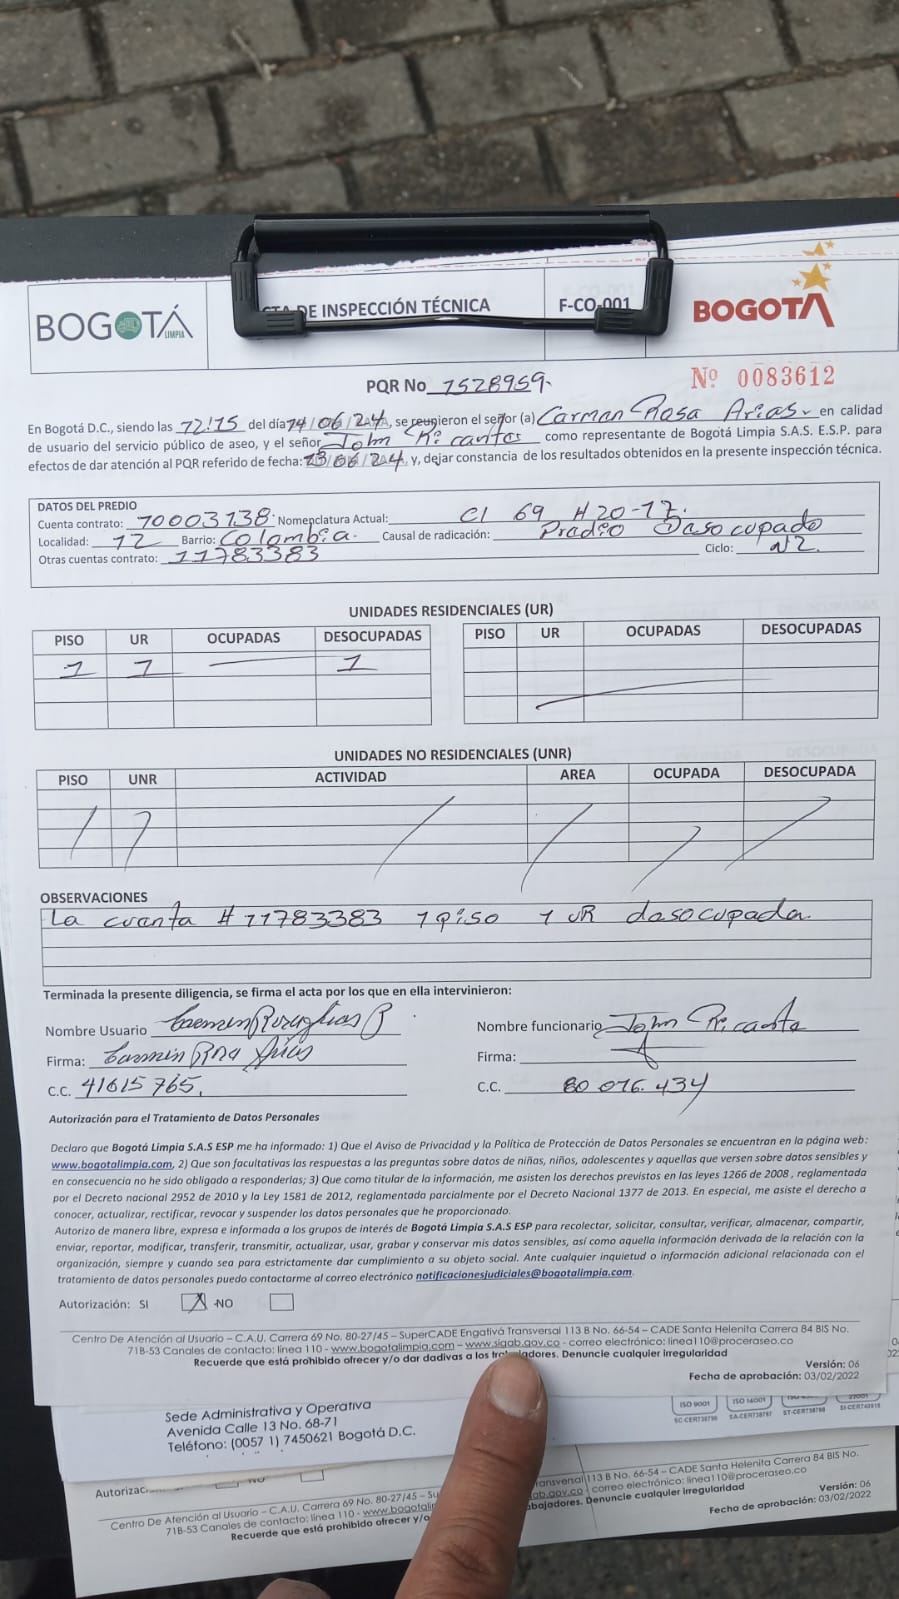 BOGOTÁ
LIMPIA
DE INSPECCIÓN TÉCNICA
F-CO-001
BOGOTÁ
PQR No 1528959.
Nº 0083612
En Bogotá D.C., siendo las 12:15 del día 14/06/24, se reunieron el señor (a) Carman Rosa Arias en calidad
de usuario del servicio público de aseo, y el señor John Ricaurte como representante de Bogotá Limpia S.A.S. E.S.P. para
efectos de dar atención al PQR referido de fecha: 13/06/24 y, dejar constancia de los resultados obtenidos en la presente inspección técnica.
DATOS DEL PREDIO
Cuenta contrato: 10003138 Nomenclatura Actual: Cl 69 # 20-17.
Localidad: 12 Barrio: Colombia. Causal de radicación: Predio Desocupado
Otras cuentas contrato: 11783383 Ciclo: N2.
UNIDADES RESIDENCIALES (UR)
PISO UR OCUPADAS DESOCUPADAS PISO UR OCUPADAS DESOCUPADAS
1 1 — 1
UNIDADES NO RESIDENCIALES (UNR)
PISO UNR ACTIVIDAD AREA OCUPADA DESOCUPADA
OBSERVACIONES
La cuenta # 11783383 1 piso 1 UR desocupada.
Terminada la presente diligencia, se firma el acta por los que en ella intervinieron:
Nombre Usuario Carmen Rosa Arias Nombre funcionario John Ricaurte
Firma: Carmen Rosa Arias Firma:
C.C. 41615765. C.C. 80 076.434
Autorización para el Tratamiento de Datos Personales
Declaro que Bogotá Limpia S.A.S ESP me ha informado: 1) Que el Aviso de Privacidad y la Política de Protección de Datos Personales se encuentran en la página web:
www.bogotalimpia.com, 2) Que son facultativas las respuestas a las preguntas sobre datos de niñas, niños, adolescentes y aquellas que versen sobre datos sensibles y
en consecuencia no he sido obligado a responderlas; 3) Que como titular de la información, me asisten los derechos previstos en las leyes 1266 de 2008 , reglamentada
por el Decreto nacional 2952 de 2010 y la Ley 1581 de 2012, reglamentada parcialmente por el Decreto Nacional 1377 de 2013. En especial, me asiste el derecho a
conocer, actualizar, rectificar, revocar y suspender los datos personales que he proporcionado.
Autorizo de manera libre, expresa e informada a los grupos de interés de Bogotá Limpia S.A.S ESP para recolectar, solicitar, consultar, verificar, almacenar, compartir,
enviar, reportar, modificar, transferir, transmitir, actualizar, usar, grabar y conservar mis datos sensibles, así como aquella información derivada de la relación con la
organización, siempre y cuando sea para estrictamente dar cumplimiento a su objeto social. Ante cualquier inquietud o información adicional relacionada con el
tratamiento de datos personales puedo contactarme al correo electrónico notificacionesjudiciales@bogotalimpia.com.
Autorización: SI X NO
Centro De Atención al Usuario – C.A.U. Carrera 69 No. 80-27/45 – SuperCADE Engativá Transversal 113 B No. 66-54 – CADE Santa Helenita Carrera 84 BIS No.
71B-53 Canales de contacto: línea 110 - www.bogotalimpia.com – www.sigab.gov.co - correo electrónico: linea110@proceraseo.co
Recuerde que está prohibido ofrecer y/o dar dadivas a los trabajadores. Denuncie cualquier irregularidad
Versión: 06
Fecha de aprobación: 03/02/2022
Sede Administrativa y Operativa
Avenida Calle 13 No. 68-71
Teléfono: (0057 1) 7450621 Bogotá D.C.
ISO 9001 ISO 14001
SC-CER738798 SA-CER738797 ST-CER738798
NO
Centro De Atención al Usuario – C.A.U. Carrera 69 No. 80-27/45 – Transversal 113 B No. 66-54 – CADE Santa Helenita Carrera 84 BIS No.
71B-53 Canales de contacto: línea 110 - correo electrónico: linea110@proceraseo.co
Recuerde que está prohibido ofrecer y/o Denuncie cualquier irregularidad
Versión: 06
Fecha de aprobación: 03/02/2022